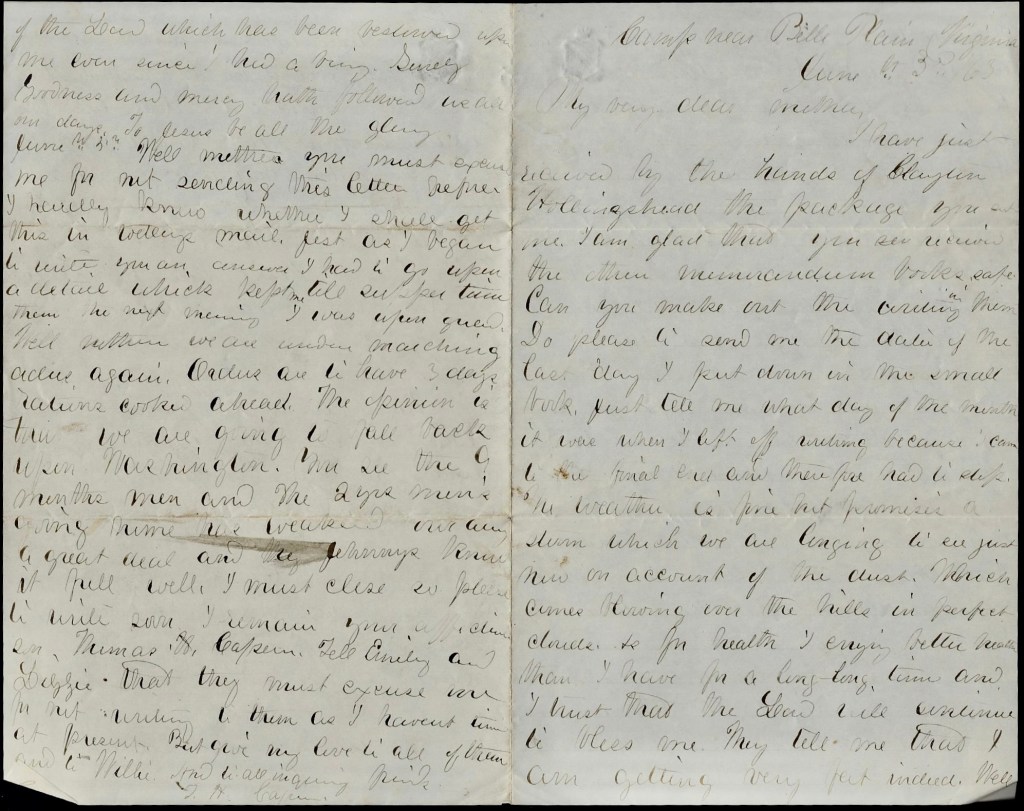 Camp near Bell Plain Virginia
June 3rd /63
My very dear mother,
I have just
recieved by the hands of Clayton
Hollingshead the package you sent
me. I am glad that you
the other memorandum books safe.
Can you make out the writing in them
Do please to send me the date of the
last day I put down in the small
book. Just tell me what day of the month
it was when I left off writing because I came
to the final end and therefore had to stop.
The weather is fine but promises a
storm which we are longing to see just
now on account of the dust. Which
comes blowing over the hills in perfect
clouds. As for health I enjoy better health
than I have for a long-long time and
I trust that the Lord will continue
to bless me. They tell me that I
am getting very fat indeed. Well
of the Lord which has been bestowed upon
me ever since I had a being. Surely
Goodness and mercy hath followed us all
our days. To Jesus be all the glory.
June Well mother you must excuse
me for not sending this letter before
I hardly know whether I shall get
this in today's mail. Just as I began
to write you an answer I had to go upon
a detail which kept me till supper time
then the next morning I was upon guard.
Well mother we are under marching
orders again. Orders are to have 3 days
rations cooked ahead. The opinion is
that we are going to fall back
upon Washington. You see the 9
months men and the 2 yrs men's
going home has weakened our army
a great deal and the Johnnys know
it full well. I must close so please
to write soon. I remain your affectionate
son, Thomas H. Capern. Tell Emily and
Lizzie that they must excuse me
for not writing to them as I havent time
at present. But give my love to all of them
and to Willie. And to all inquiring friends
T. H. Capern.